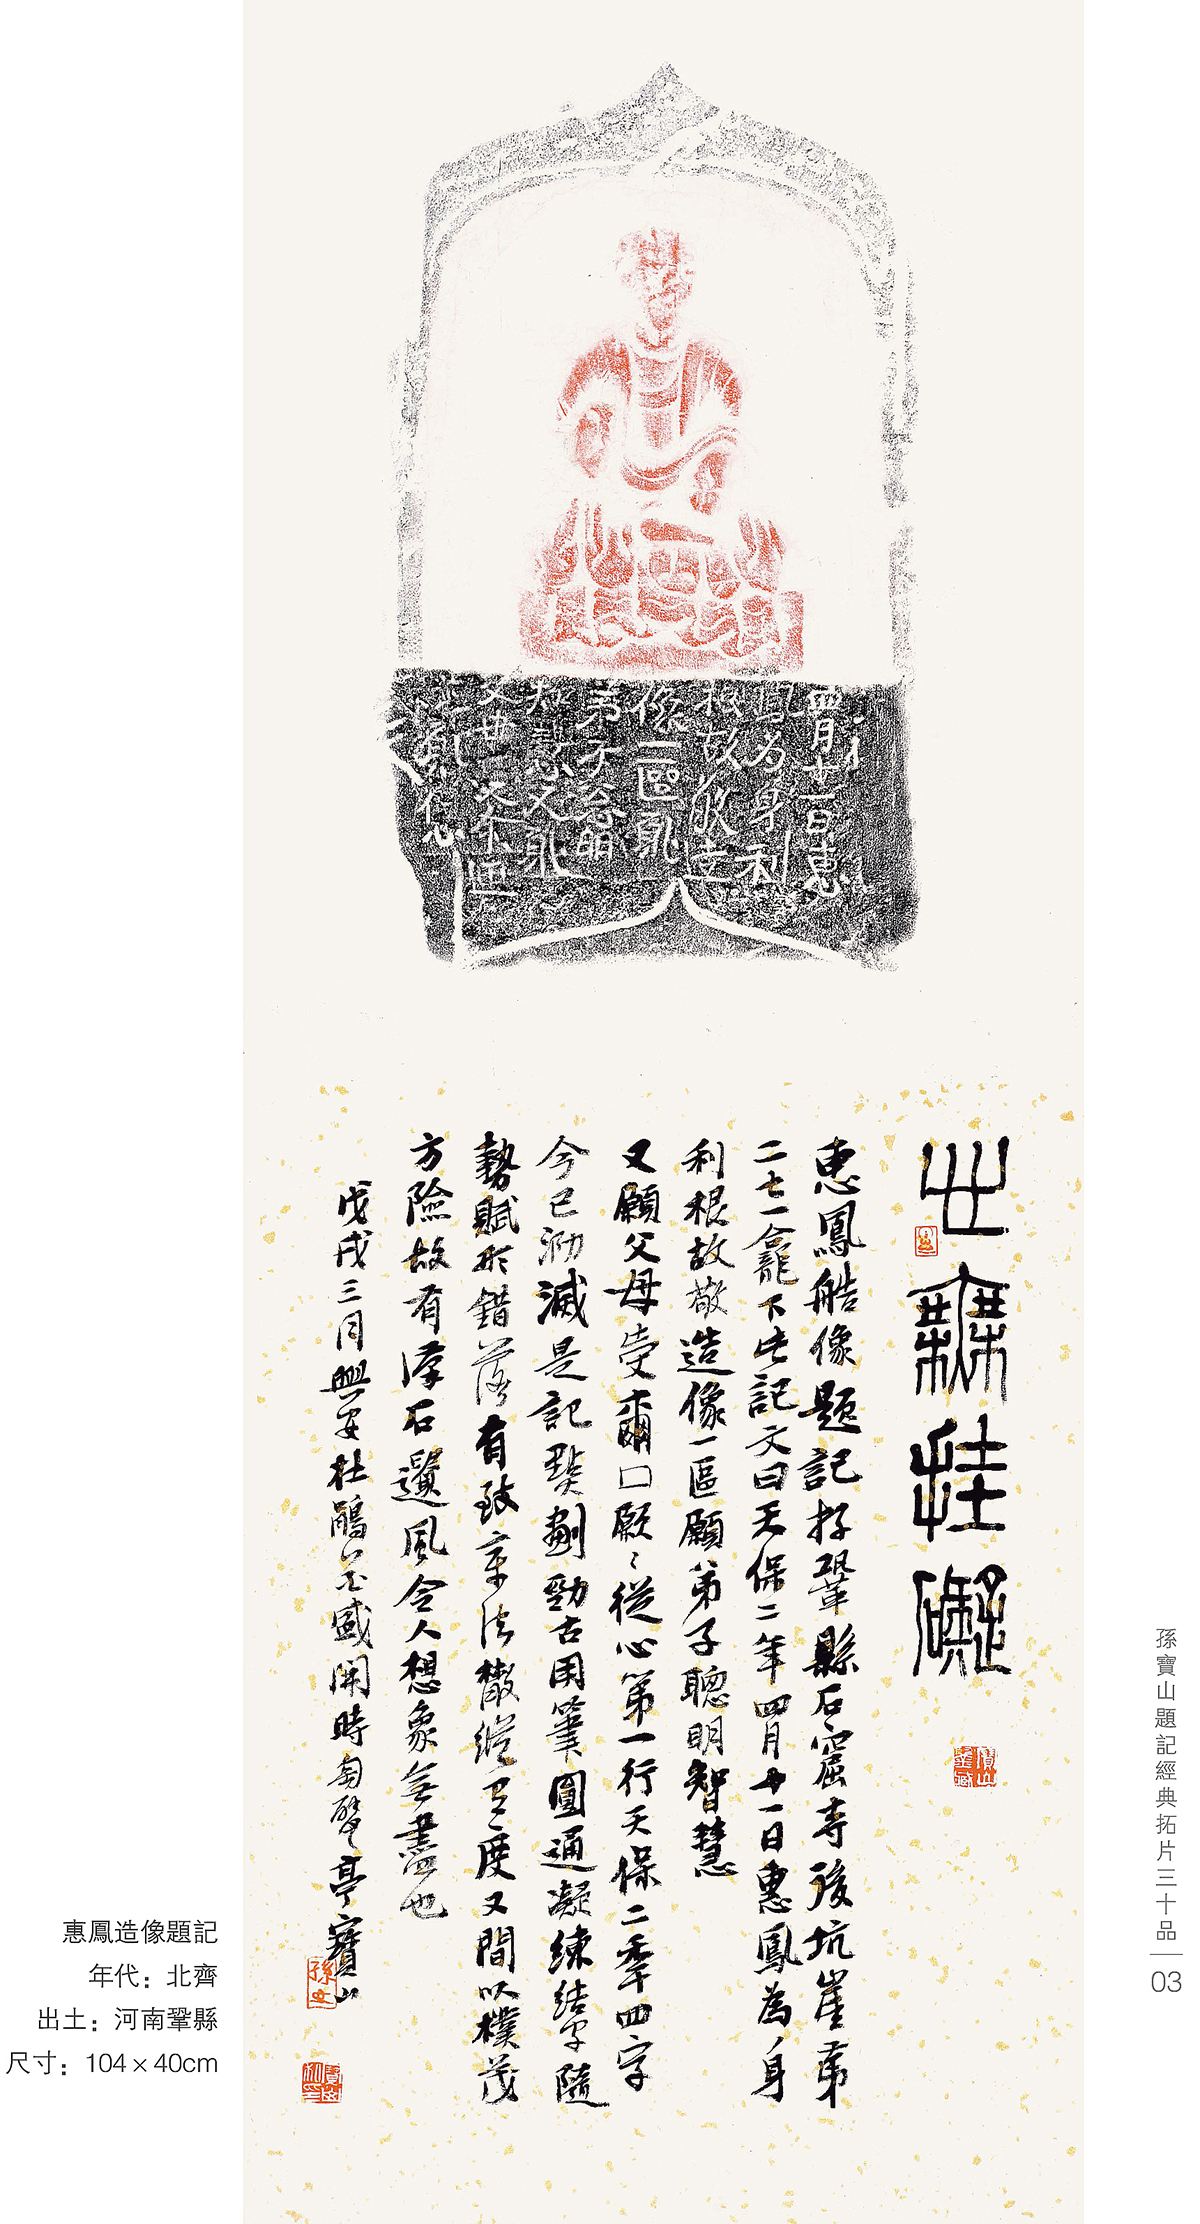 四月廿一日惠
鳳為身利
根故敬造
像一區願
弟子聰明
知慧又願
父母受
從心
出無挂礙
惠鳳造像題記於鞏縣石窟寺後坑崖第
二七一龕下告記文曰天保二年四月廿一日惠鳳為身
利根故敬造像一區願弟子聰明智慧
又願父母受爾口願〻從心第一行天保二年四字
今已泐滅是記點劃勁古用筆圓通凝練結字隨
勢賦形錯落有致章法擻縱有度又間以樸茂
方險故有渾石邁風令人想象無盡也
戊戌三月興安杜鵑花盛開時匋甓亭寶山
惠鳳造像題記
年代：北齊
出土：河南鞏縣
尺寸：104×40cm
孫寶山題記經典拓片三十品
03